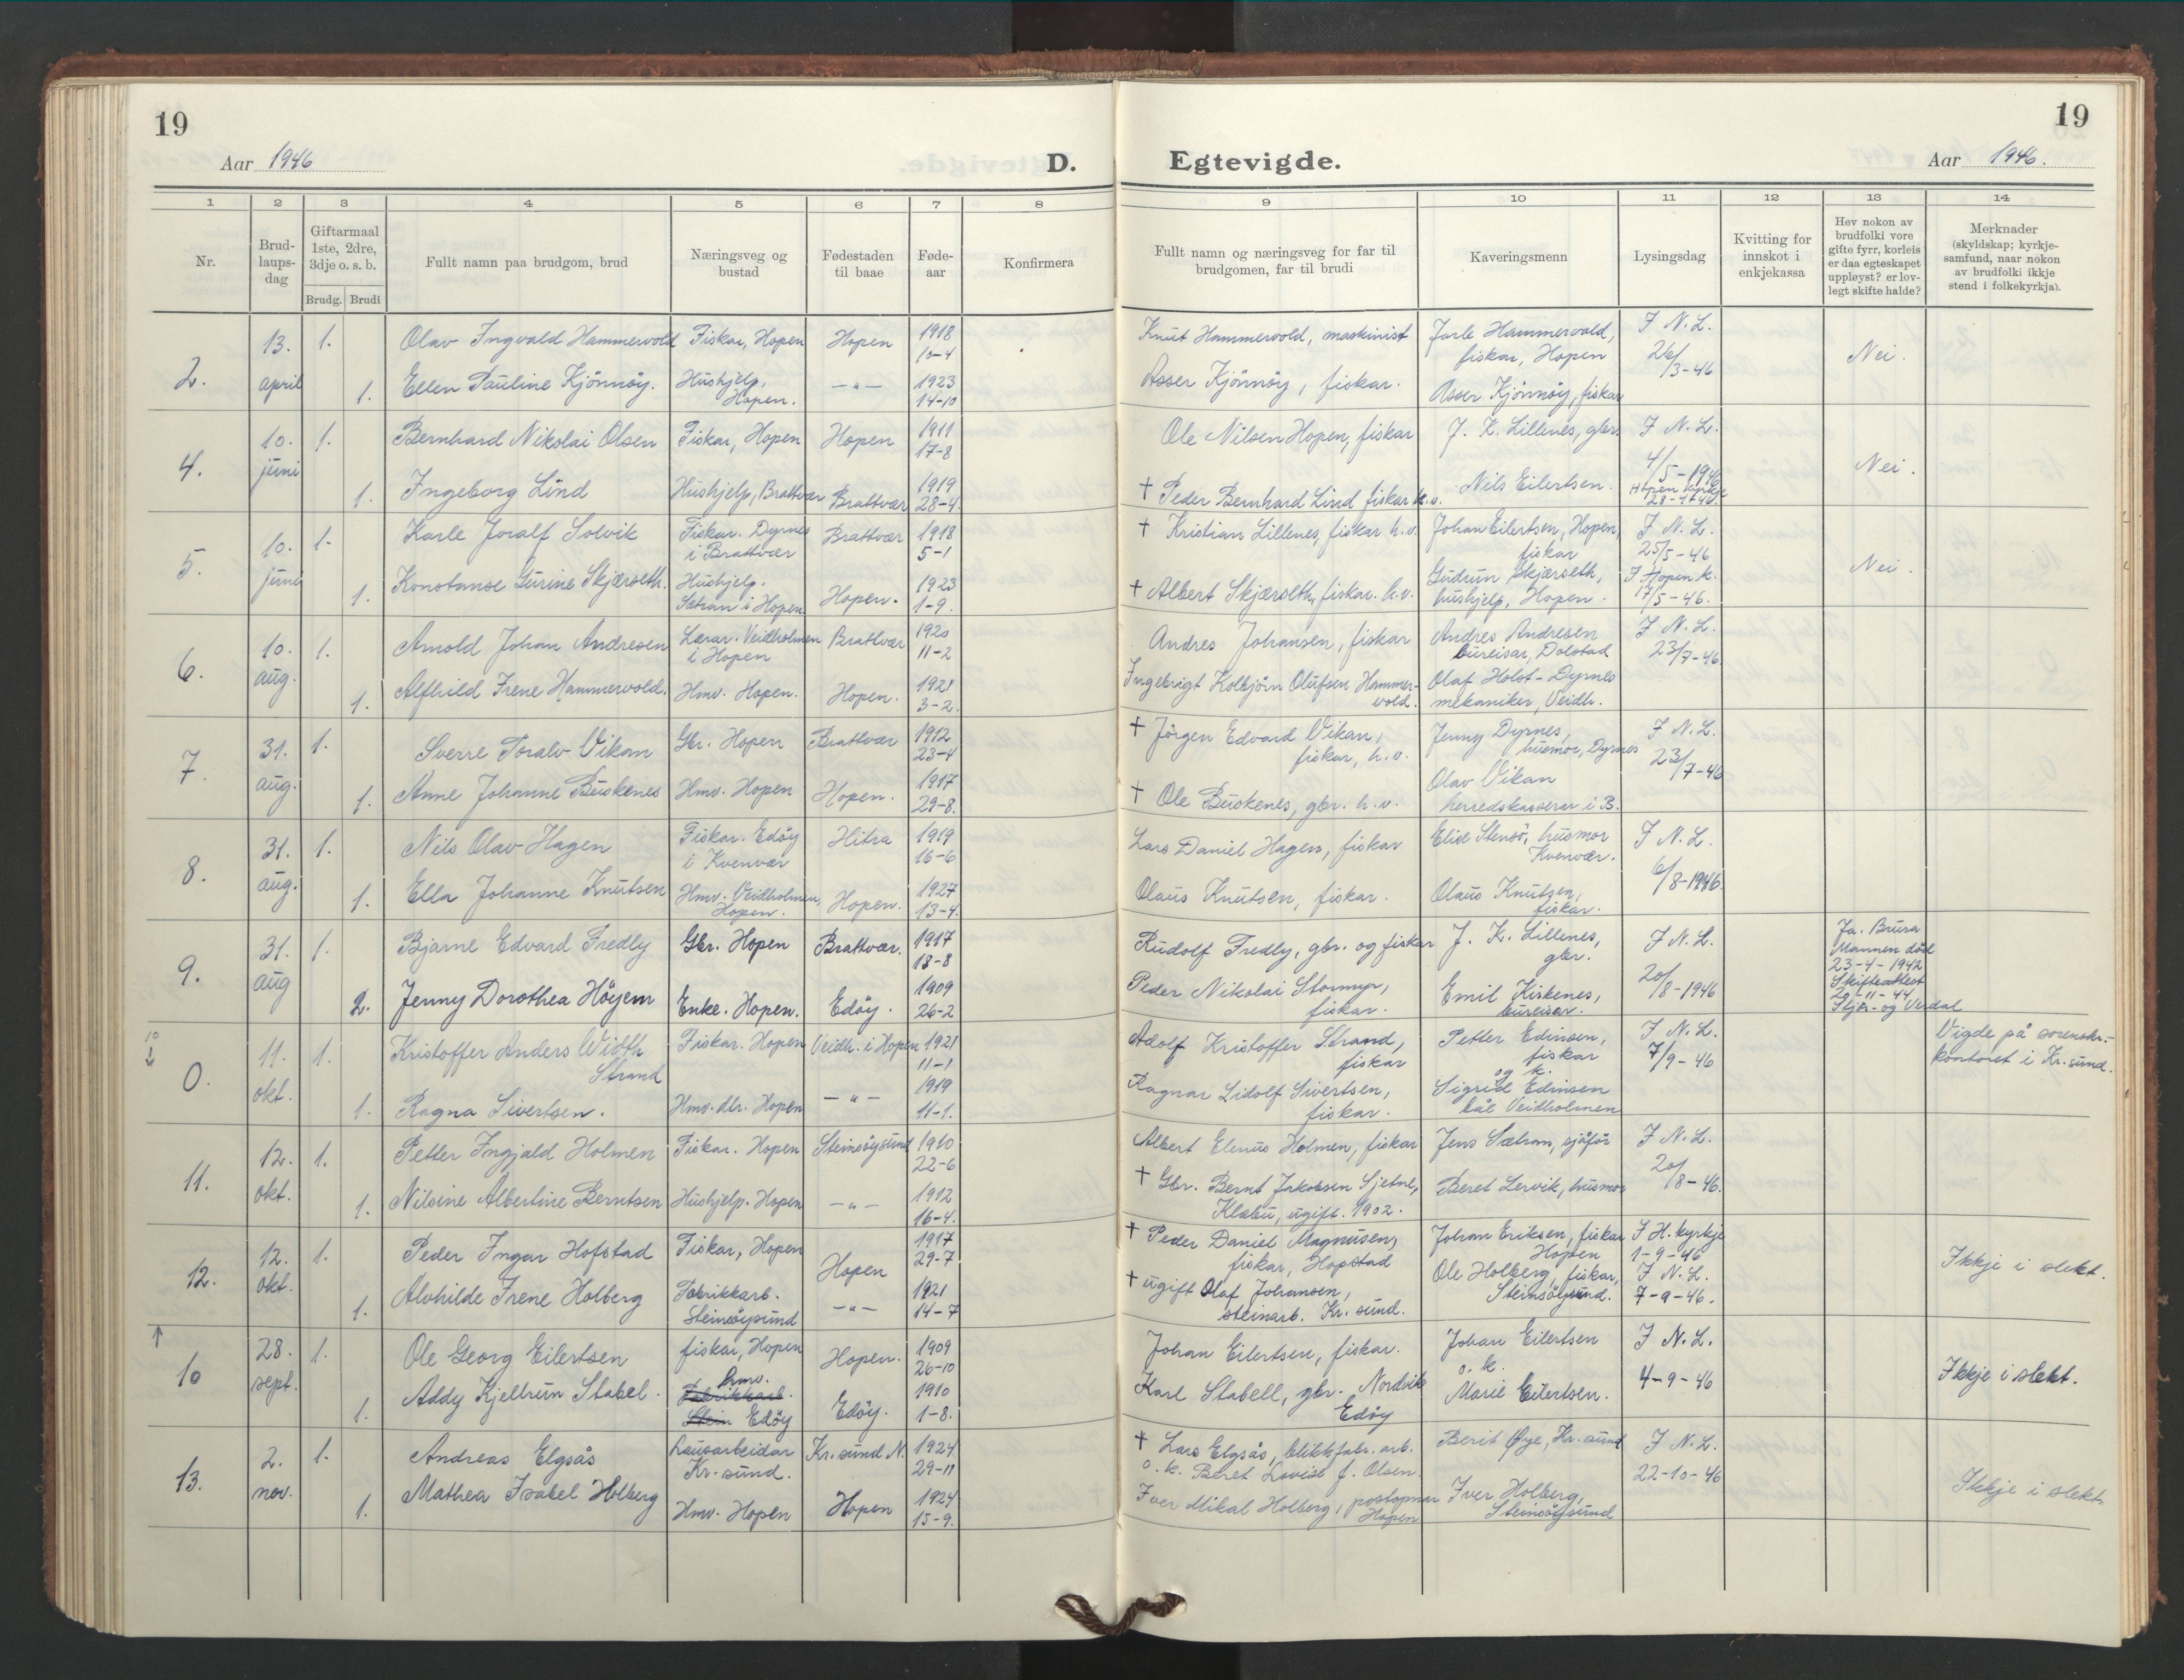 19
Aar 1946
D.
Egtevigde.
Aar 1946.
19
1 2 3 4 5 6 7 8 9 10 11 12 13 14
Nr.
Brud-
laups-
dag
Giftarmaal
1ste, 2dre,
3dje o. s. b.
Brudg. Brudi
Fullt namn paa brudgom, brud
Næringsveg og
bustad
Fødestaden
til baae
Føde-
aar
Konfirmera
Fullt namn og næringsveg for far til
brudgomen, far til brudi
Kaveringsmenn
Lysingsdag
Kvitting for
innskot i
enkjekassa
Hev nokon av
brudfolki vore
gifte fyrr, korleis
er daa egteskapet
uppløyst? er lov-
legt skifte halde?
Merknader
(skyldskap; kyrkje-
samfund, naar nokon
av brudfolki ikkje
stend i folkekyrkja).
2.
13.
april
1.
Olav Ingvald Hammervold
Fiskar, Hopen
Hopen
1918
10-4
Knut Hammervold, maskinist
Jarle Hammervold,
fiskar, Hopen
J N. L.
26/3-46
Nei.
1.
Ellen Pauline Kjönnöy.
Hushjelp.
Hopen.
-"-
1923
14-10
Asser Kjönnöy, fiskar.
Asser Kjönnöy, fiskar
4.
10.
juni
1.
Bernhard Nikolai Olsen
Fiskar, Hopen
Hopen
1911
17-8
Ole Nilsen Hopen, fiskar
J. K. Lillenes, gbr.
J N. L.
4/5-1946
Hopen kyrkje
28-4-46
Nei.
1.
Ingeborg Lind
Hushjelp, Brattvær
Brattvær
1919
28-4
† Peder Bernhard Lind fiskar h.v.
Nils Eilertsen.
5.
10.
juni
1.
Karle Joralf Solvik
Fiskar. Dyrnes
i Brattvær
Brattvær
1918
5-1
† Kristian Lillenes, fiskar h.v.
Johan Eilertsen, Hopen,
fiskar
J N. L.
25/5-46
J Hopen k.
17/5-46.
Nei.
1.
Konstanse Gurine Skjærseth.
Hushjelp.
Sætran i Hopen
Hopen.
1923
1-9.
† Albert Skjærseth, fiskar. h.v.
Gudrun Skjærseth,
hushjelp, Hopen.
6.
10.
aug.
1.
Arnold Johan Andresen
Lærar. Veidholmen
i Hopen
Brattvær
1920
11-2
Andres Johansen, fiskar
Andres Andresen
bureisar, Dolstad
J N. L.
23/7-46
1.
Alfhild Irene Hammervold.
Hmv. Hopen.
Hopen.
1921
3-2.
Ingebrigt Kolbjörn Olufsen Hammer-
vold.
Olaf Holst-Dyrnes
mekaniker, Veidh.
7.
31.
aug.
1.
Sverre Toralv Vikan
Gbr. Hopen
Brattvær
1912
23-4
† Jörgen Edvard Vikan,
fiskar, h.v.
Jenny Dyrnes,
husmor, Dyrnes
J N. L.
23/7-46
1.
Anne Johanne Buskenes
Hmv. Hopen
Hopen.
1917
29-8.
† Ole Buskenes, gbr. h.v.
Olav Vikan
herredskasserar i B.
8.
31.
aug.
1.
Nils Olav Hagen
Fiskar. Edöy
i Kvenvær
Hitra
1919
16-6
Lars Daniel Hagen, fiskar
Elise Stensö, husmor
Kvenvær.
J N. L.
6/8-1946.
1.
Ella Johanne Knutsen
Hmv. Veidholmen,
Hopen.
Hopen.
1927
13-4.
Olaus Knutsen, fiskar.
Olaus Knutsen,
fiskar.
9.
31.
aug
1.
Bjarne Edvard Fredly
Gbr. Hopen
Brattvær.
1917
13-8
Rudolf Fredly, gbr. og fiskar
J. K. Lillenes,
gbr.
J N. L.
20/8-1946
Ja. Brura
Mannen död
23-4-1942
Skifteattest
29-11-44
Stjör- og Verdal
2.
Jenny Dorothea Höyem
Enke. Hopen.
Edöy.
1909
26-2
Peder Nikolai Stormyr,
fiskar.
Emil Kiskenes,
bureisar.
10
↓
0.
11.
okt.
1.
Kristoffer Anders Width
Strand
Fiskar. Hopen
Veidh. i Hopen
1921
11-1
Adolf Kristoffer Strand,
fiskar
Petter Edinsen,
fiskar
og k.
Sigrid Edinsen
båe Veidholmen
J N. L.
7/9-46
Vigde på sorenskr.-
kontoret i Kr.sund.
1.
Ragna Sivertsen.
Hmv. dtr. Hopen
-"-
1919
11-1.
Ragnar Lidolf Sivertsen,
fiskar.
11.
12.
okt.
1.
Petter Ingjald Holmen
Fiskar. Hopen
Steinsöysund
1910
22-6
Albert Elenus Holmen, fiskar
Jens Sætran, sjåför
J N. L.
20/8-46.
1.
Nilsine Albertine Berntsen
Hushjelp. Hopen
-"-
1912
16-4.
† Gbr. Bernt Jakobsen Sjetne,
Klæbu, ugift. 1902.
Beret Lervik, husmor
12.
12.
okt.
1.
Peder Ingar Hofstad
Fiskar, Hopen
Hopen
1917
29-7
† Peder Daniel Magnusen,
fiskar, Hopstad
Johan Eriksen, fiskar
Hopen
J H. kyrkje
1-9-46
J N. L.
7-9-46.
Ikkje i slekt.
1.
Alvhilde Irene Holberg
Fabrikkarb.
Steinsöysund
-"-
1921
14-7
† ugift Olaf Johansen,
steinarb. Kr. sund.
Ole Holberg, fiskar,
Steinsöysund.
↑
10
28.
sept.
1.
Ole Georg Eilertsen
fiskar, Hopen
Hopen.
1909
26-10
Johan Eilertsen, fiskar.
Johan Eilertsen
o. k.
Marie Eilertsen.
J N. L.
4-9-46
Ikkje i slekt.
1.
Addy Kjellrun Stabel.
hmv.
Fabrikkarb.
Stein Edöy
Edöy.
1910
1-8.
Karl Stabell, gbr. Nordvik
Edöy
13.
2.
nov.
1.
Andreas Elgsås
Lausarbeidar
Kr. sund.
Kr. sund N.
1924
29-11
† Lars Elgsås, blikkfabr. arb.
o. k. Beret Lovise f. Olsen.
Berit Øye, Kr. sund
J N. L.
22-10-46
Ikkje i slekt.
1.
Mathea Isabel Holberg
Hmv. Hopen
Hopen
1924
15-9.
Iver Mikal Holberg, postopnar
Hopen
Iver Holberg,
Steinsöysund